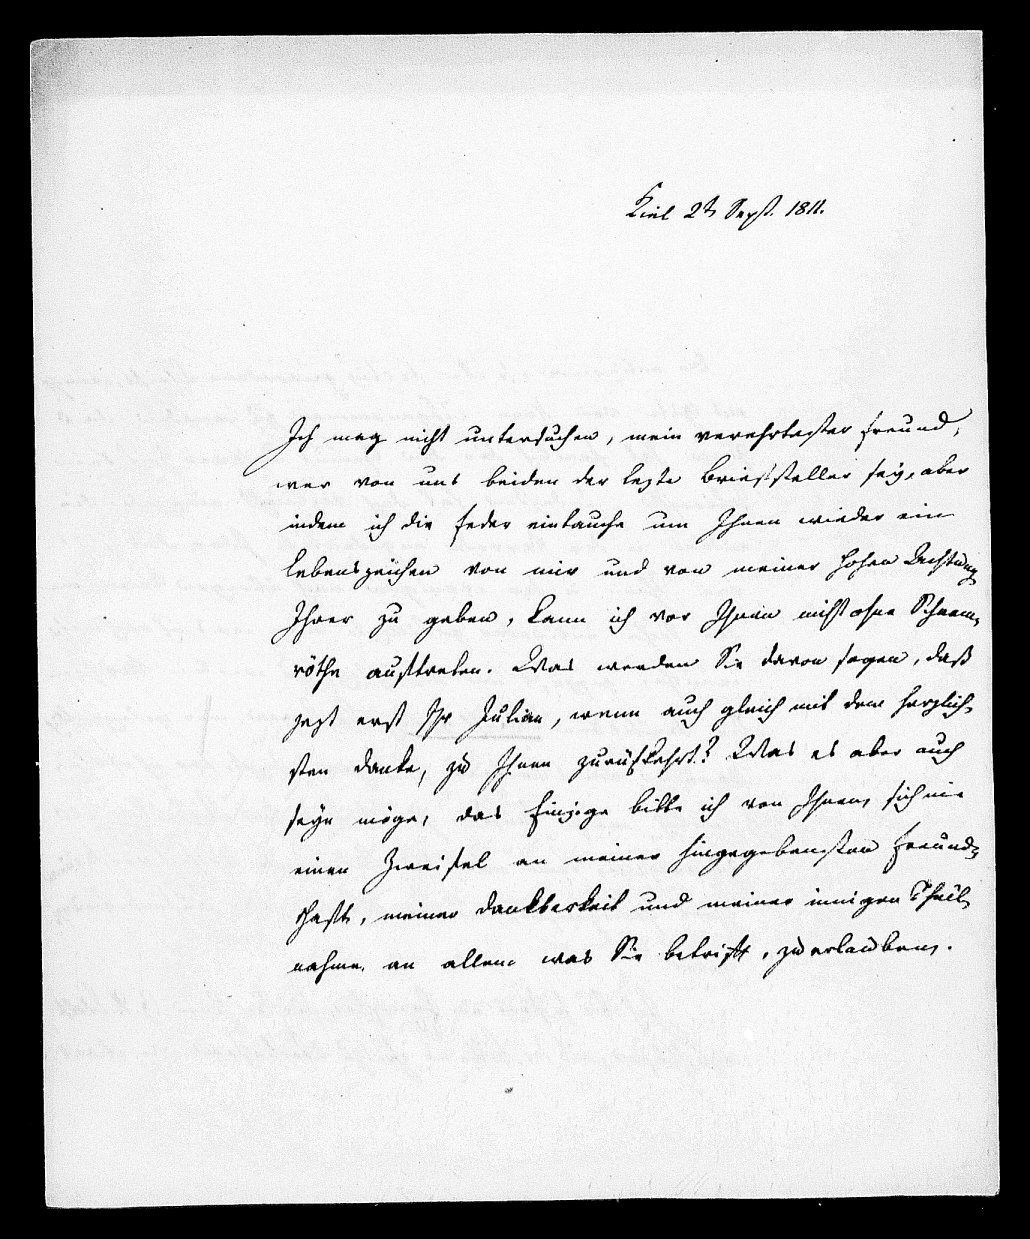 Kiel 2t Sept. 1811.
Ich mag nicht untersuchen, mein verehrtester Freund,
wer von uns beiden der lezte Briefsteller sey, aber
indem ich die Feder eintauche um Ihnen wieder ein
Lebenszeichen von mir und von meiner hohen Achtung
Ihrer zu geben, kann ich vor Ihnen nicht ohne Scham-
röthe auftreten. Was werden Sie davon sagen, daß
jezt erst Ihr Julian, wenn auch gleich mit dem herzlich-
sten Danke, zu Ihnen zurükkehrt? Was es aber auch
seyn möge, das Einzige bitte ich von Ihnen, sich nie
einen Zweifel an meiner hingegebensten Freund-
schaft, meiner Dankbarkeit und meiner innigen Theil-
nahme an allem was Sie betrifft, zu erlauben.